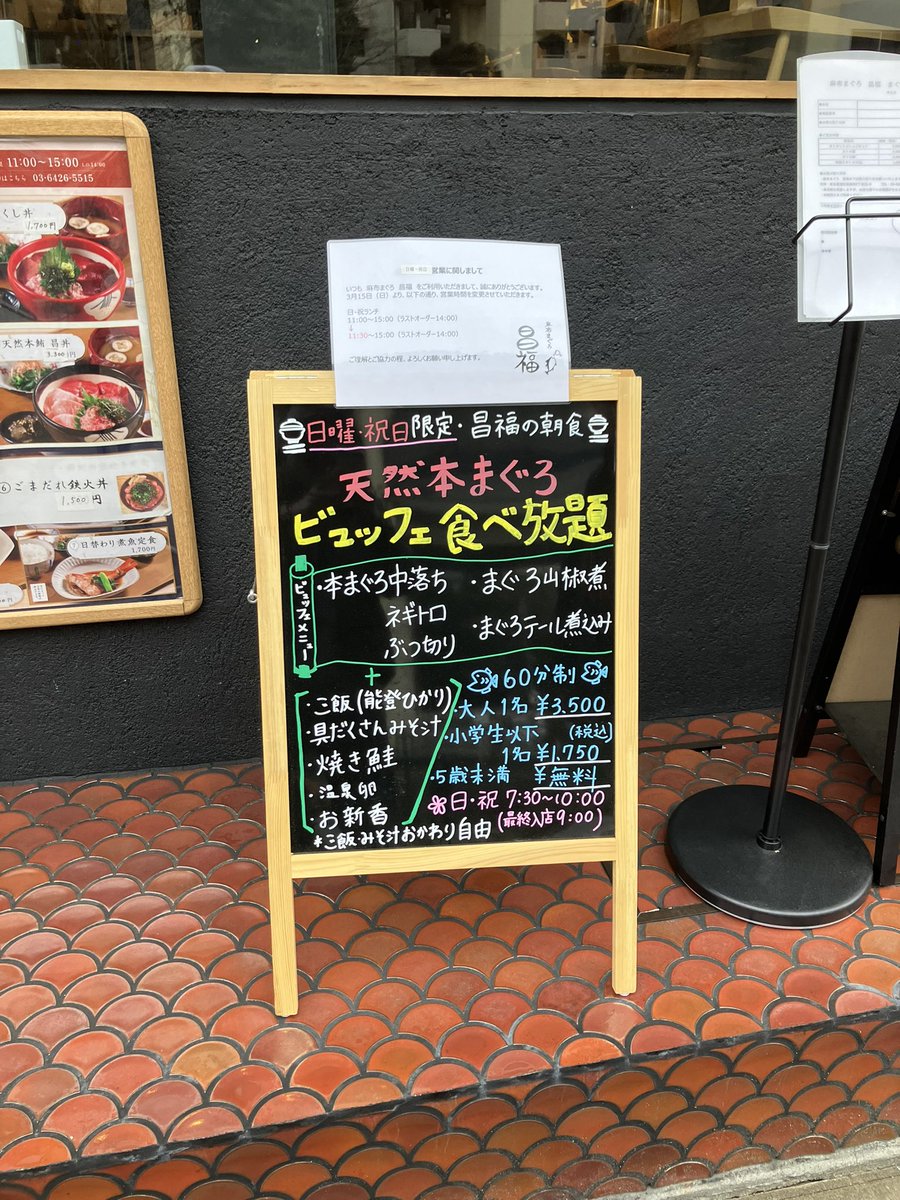 11:00～15:00
03-6426-5515
くし丼
1,700円
天然本鮪 昌丼
3,300円
⑥ごまだれ鉄火丼
1,500円
⑦日替わり煮魚定食
1,700円
日曜・祝日 営業に関しまして
いつも 麻布まぐろ 昌福 をご利用いただきまして、誠にありがとうございます。
3月15日（日）より、以下の通り、営業時間を変更させていただきます。
日・祝ランチ
11:00～15:00（ラストオーダー14:00）
↓
11:30～15:00（ラストオーダー14:00）
ご理解とご協力の程、よろしくお願い申し上げます。
麻布まぐろ
昌福
日曜・祝日限定・昌福の朝食
天然本まぐろ
ビュッフェ食べ放題
ビュッフェメニュー
・本まぐろ中落ち
ネギトロ
ぶつ切り
・まぐろ山椒煮
・まぐろテール煮込み
+
・ご飯(能登ひかり)
・具だくさんみそ汁
・焼き鮭
・温泉卵
・お新香
*ご飯・みそ汁おかわり自由
60分制
・大人1名 ¥3,500
・小学生以下 (税込)
1名 ¥1,750
・5歳未満 ¥無料
日・祝 7:30～10:00
(最終入店9:00)
麻布まぐろ 昌福